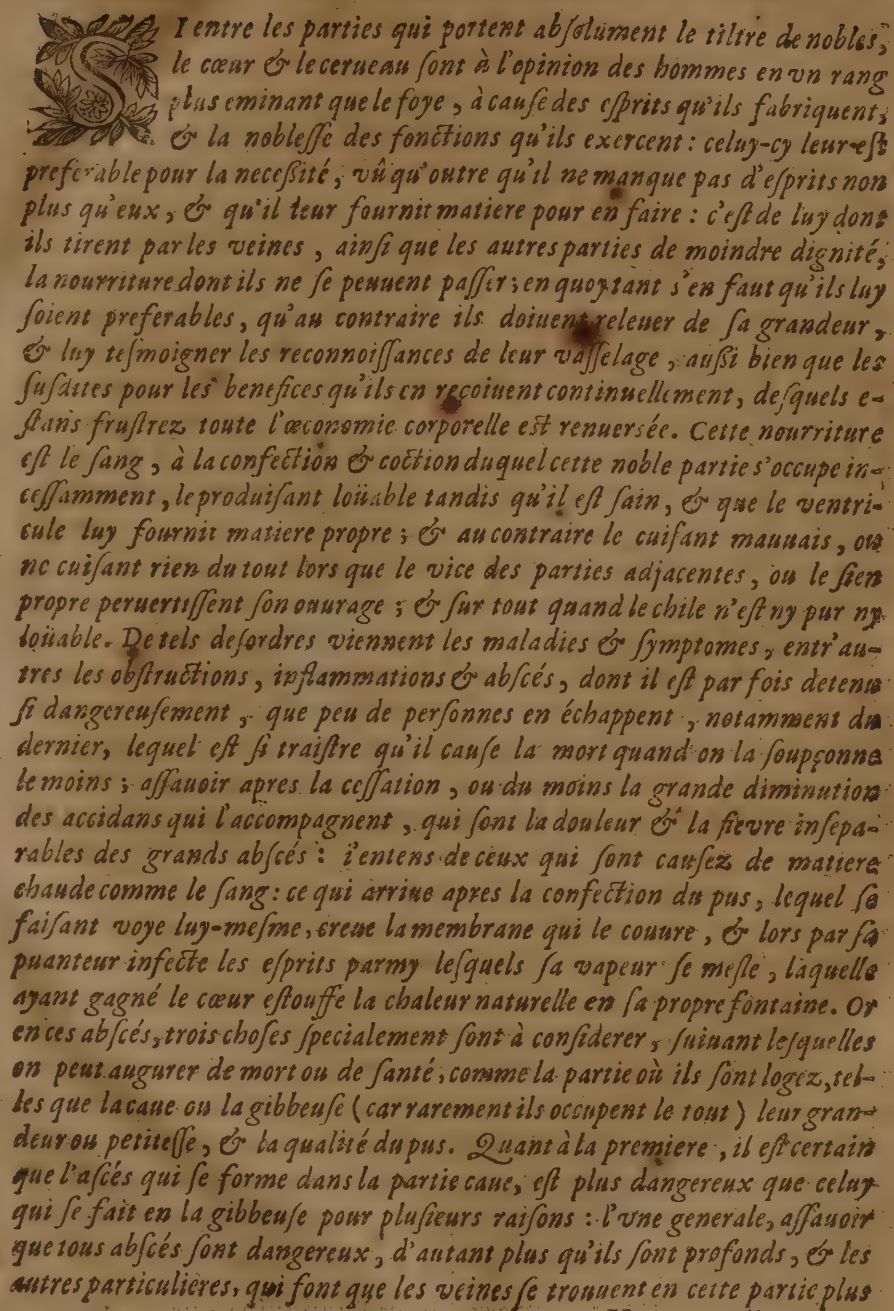 SI entre les parties qui portent absolument le tiltre de nobles,
le cœur & le cerueau sont à l'opinion des hommes en vn rang
plus eminant que le foye, à cause des esprits qu'ils fabriquent,
& la noblesse des fonctions qu'ils exercent: celuy-cy leur est
preferable pour la necessité, vû qu'outre qu'il ne manque pas d'esprits non
plus qu'eux, & qu'il leur fournit matiere pour en faire: c'est de luy dont
ils tirent par les veines, ainsi que les autres parties de moindre dignité,
la nourriture dont ils ne se peuuent passer; en quoy tant s'en faut qu'ils luy
soient preferables, qu'au contraire ils doiuent releuer de sa grandeur,
& luy tesmoigner les reconnoissances de leur vasselage, aussi bien que les
susdites pour les benefices qu'ils en reçoiuent continuellement, desquels e-
stans frustrez toute l'œconomie corporelle est renuersée. Cette nourriture
est le sang, à la confection & coction duquel cette noble partie s'occupe in-
cessamment, le produisant loüable tandis qu'il est sain, & que le ventri-
cule luy fournit matiere propre; & au contraire le cuisant mauuais, ou
ne cuisant rien du tout lors que le vice des parties adjacentes, ou le sien
propre peruertissent son ouurage; & sur tout quand le chile n'est ny pur ny
loüable. De tels desordres viennent les maladies & symptomes, entr'au-
tres les obstructions, inflammations & abscés, dont il est par fois detenu
si dangereusement, que peu de personnes en échappent, notamment du
dernier, lequel est si traistre qu'il cause la mort quand on la soupçonne
le moins; assauoir apres la cessation, ou du moins la grande diminution
des accidans qui l'accompagnent, qui sont la douleur & la fievre insepa-
rables des grands abscés: i'entens de ceux qui sont causez de matiere
chaude comme le sang: ce qui arriue apres la confection du pus, lequel se
faisant voye luy-mesme, creue la membrane qui le couure, & lors par sa
puanteur infecte les esprits parmy lesquels sa vapeur se mesle, laquelle
ayant gagné le cœur estouffe la chaleur naturelle en sa propre fontaine. Or
en ces abscés, trois choses specialement sont à considerer, suiuant lesquelles
on peut augurer de mort ou de santé, comme la partie où ils sont logez, tel-
les que la caue ou la gibbeuse (car rarement ils occupent le tout) leur gran-
deur ou petitesse, & la qualité du pus. Quant à la premiere, il est certain
que l'ascés qui se forme dans la partie caue, est plus dangereux que celuy
qui se fait en la gibbeuse pour plusieurs raisons: l'vne generale, assauoir
que tous abscés sont dangereux, d'autant plus qu'ils sont profonds, & les
autres particulieres, qui font que les veines se trouuent en cette partie plus